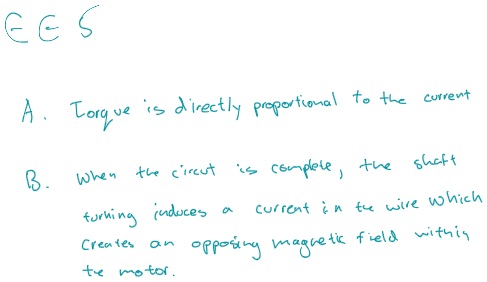 EES
A. Torque is directly proportional to the current
B. When the circut is complete, the shaft
turning induces a current in the wire which
creates an opposing magnetic field within
the motor.